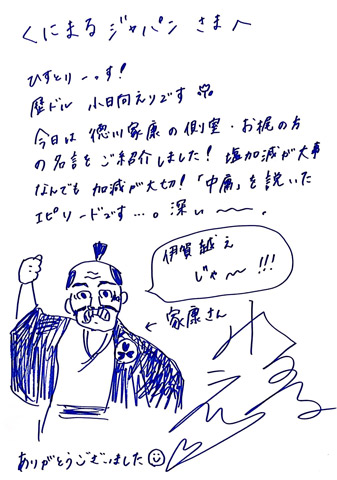 くにまるジャパン さまへ
ひすとりーっす!
歴ドル 小日向えりです
今日は 徳川家康の側室・お梶の方
の名言をご紹介しました! 塩加減が大事
なんでも 加減が大切!「中庸」を説いた
エピソードです…。深い〜〜。
伊賀越え
じゃ〜!!!
← 家康さん
ありがとうございました